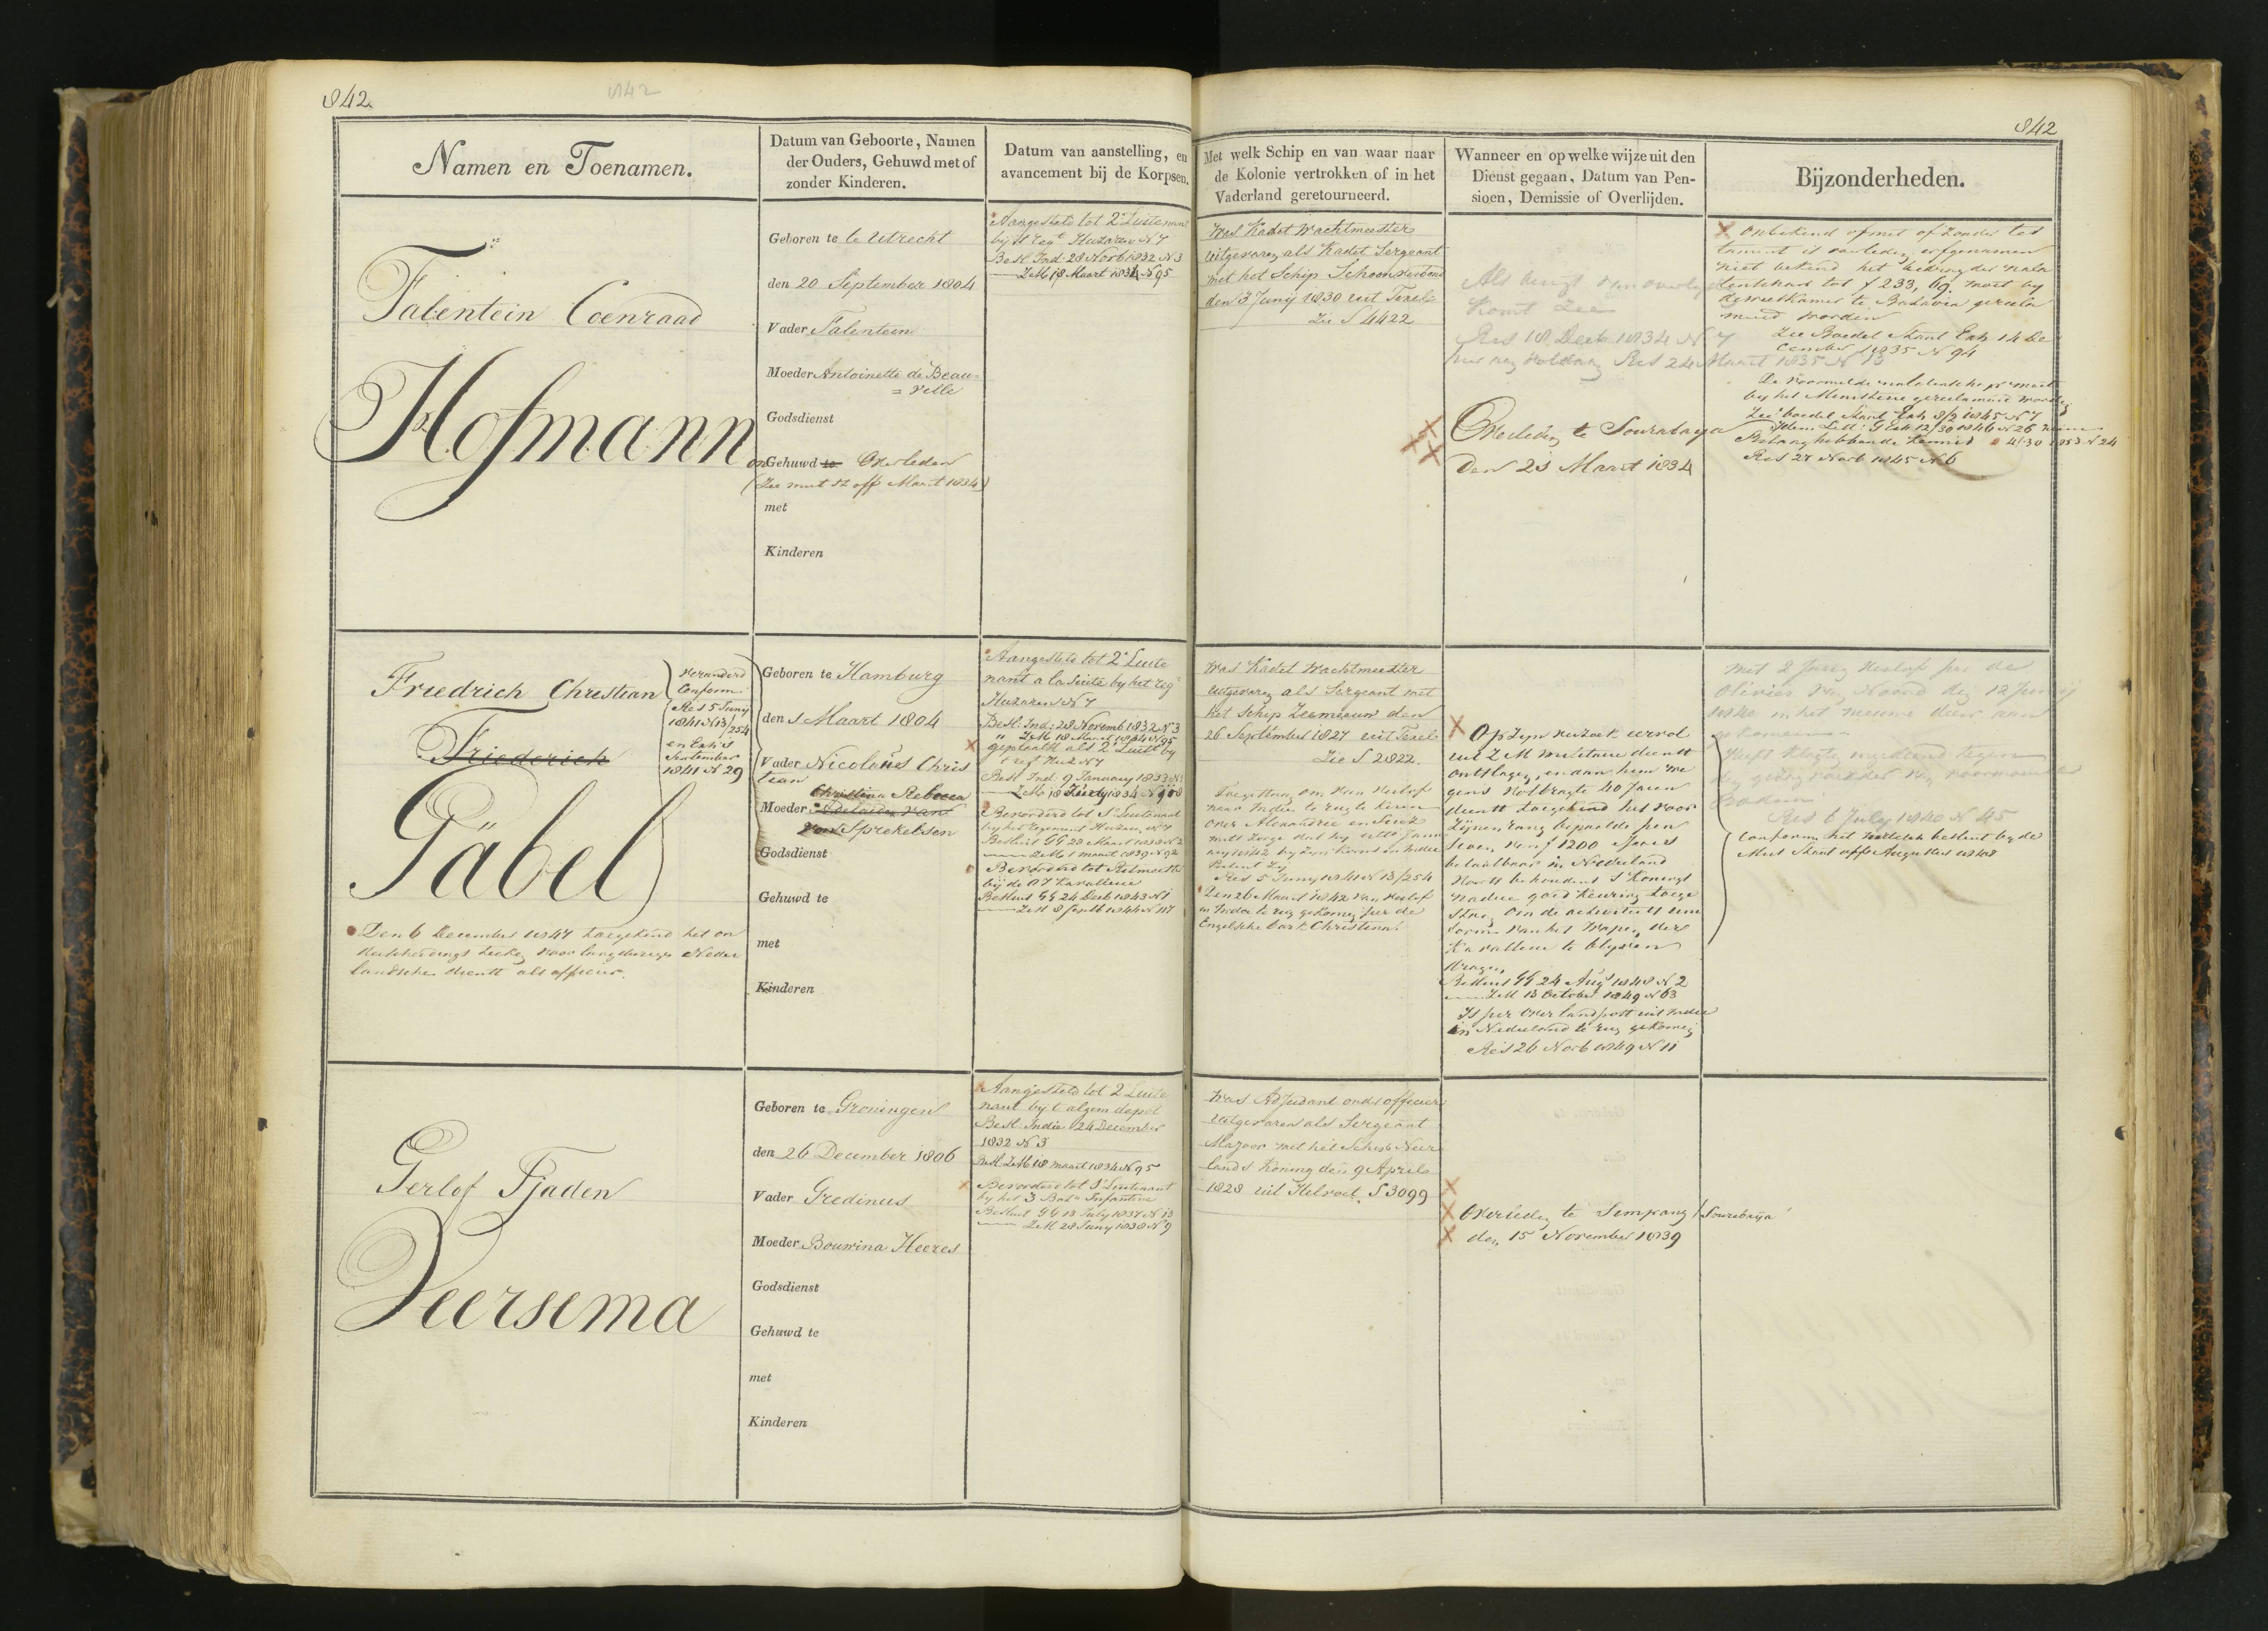 842
842
842
Namen en Toenamen.
Datum van Geboorte, Namen
der Ouders, Gehuwd met of
zonder Kinderen.
Datum van aanstelling, en
avancement bij de Korpsen.
Met welk Schip en van waar naar
de Kolonie vertrokken of in het
Vaderland geretourneerd.
Wanneer en op welke wijze uit den
Dienst gegaan, Datum van Pen-
sioen, Demissie of Overlijden.
Bijzonderheden.
Falentein Coenraad
Hofmann
Geboren te Utrecht
den 20 September 1804
Vader Falentein
Moeder Antoinette de Beau-
=velle
Godsdienst
onGehuwd te Overleden
(Zie mut st off Maart 1834)
met
Kinderen
Aangesteld tot 2e Luitenant
bij 't regt Huzaren N 7
Besl. Ind: 28 Novb 1832 N 3
ZM 18 Maart 1834 N 95
Was Kadet Wachtmeester
uitgevaren als Kadet Sergeant
met het Schip Schoonverbond
den 3 Junij 1830 uit Texel
Zie S 4422
Res 18 Decb 1834 N 7
Res 24 Maart 1835 N 13
Overleden te Sourabaya
Den 23 Maart 1834
Onbekend of met of zonder tes
tament is overleden erfgenamen
niet bekend het bedrag der nala
tenschap tot f 233, 69. moet by
de weeskamer te Batavia gerecla
meerd worden
Zie Boedel Stand Exh 14 De
cember 1835 N 94
De voormelde nalatenschap moet
by het Ministerie gereclameerd worden
Zie boedel Stand Exh 8/2 1845 N 7
Idem Lett: G Exh 12/30 1846 N 26
Belanghebbende
Res 27 Novb 1845 N 6
Friedrich Christian
Friederich
Gäbel
veranderd
Conform
Res 5 Juny
1841 N 13/254
en Exh
September
1841 N 29
Den 6 December 1847 toegekend het on
derscheidings teeken voor langdurige Neder
landsche dienst als officier.
Geboren te Hamburg
den 1 Maart 1804
Vader Nicolaus Chris
tian
Christina Rebecca
Moeder Adelaide van
von Sprekelsen
Godsdienst
Gehuwd te
met
Kinderen
Aangesteld tot 2e Luite
nant a la Suite by het reg
Huzaren N 7
Besl. Ind: 28 Novemb 1832 N 3
" ZM 18 Maart 1834 N 95
geplaatst als 2e Luitt by
't reg Huz N 7
Besl. Ind: 9 January 1833 N
Bevorderd tot 1e Luitenant
by het Regiment Huzaren N 7
Besluit GG 28 Maart 1838 N 2
ZM 1 Maart 1839 N 92
Bevorderd tot Ritmeester
bij de 07 Kavallerie
Besluit GG 24 Decb 1843 N 1
Was Kadet Wachtmeester
uitgevaren als Sergeant met
het Schip Zeemeeuw den
26 September 1827 uit Texel
Zie S 2822.
Toegestaan om van Verlof
naar Indie terug te keeren
over Alexandrie en Suez
Res 5 Juny 1841 N 13/254
Den 26 Maart 1842 van Verlof
in Indie te rug gekomen per de
Engelsche bark Christina.
Op zyn verzoek eervol
uit ZM militaire dienst
ontslagen, en aan hem we
gens volbragte 40 Jaren
dienst toegekend het voor
zijnen rang bepaalde pen
sioen van f 1200 's jaars
betaalbaar in Nederland
Wordt behoudens 's Konings
nadere goedkeuring toege
staan om de activiteits uni
form van het Wapen der
Kavallerie te blijven
dragen
Besluit GG 24 Augs 1848 N 2
ZM 13 October 1849 N 63
Is per overlandpost uit Indie
in Nederland te rug gekomen
Res 26 Novb 1849 N 11
Met 2 Jarig Verlof per de
Olivier van Noord den 12 Junij
1840 in het nieuwe diep aan
gekomen
Res 6 July 1840 N 45
Conform het besluit by de
Mut Stand off Augustus 1848
Gerlof Fjaden
Veersema
Geboren te Groningen
den 26 December 1806
Vader Gredinus
Moeder Bouwina Heeres
Godsdienst
Gehuwd te
met
Kinderen
Aangesteld tot 2 Luite
nant by 't algem depot
Besl. Indie 24 December
1832 N 3
Besl. ZM 18 maart 1834 N 95
Bevorderd tot 1e Luitenant
by het 3 Batn Infanterie
Besluit GG 13 July 1837 N 13
ZM 28 Juny 1838 N 9
Was Adjudant onderofficier
uitgevaren als Sergeant
Majoor met het Schip Neer
lands Koning den 9 April
1828 uit Helvoet. S 3099
Overleden te Simpang / Sourabaija
den 15 November 1839